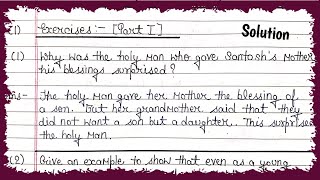 Exercises:- [Part I]
Solution
(1) Why was the holy man who gave Santosh's mother
his blessings surprised?
The holy man gave her mother the blessing of
a son. But her grandmother said that they
did not want a son but a daughter. This surprise
the holy man.
(2) Give an example to show that even as a young